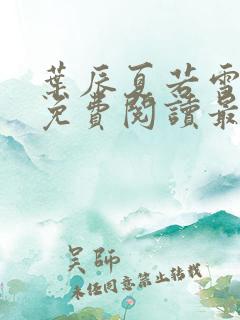 葉辰夏若雪
免費閱讀最
吳師
未任同意禁止转載